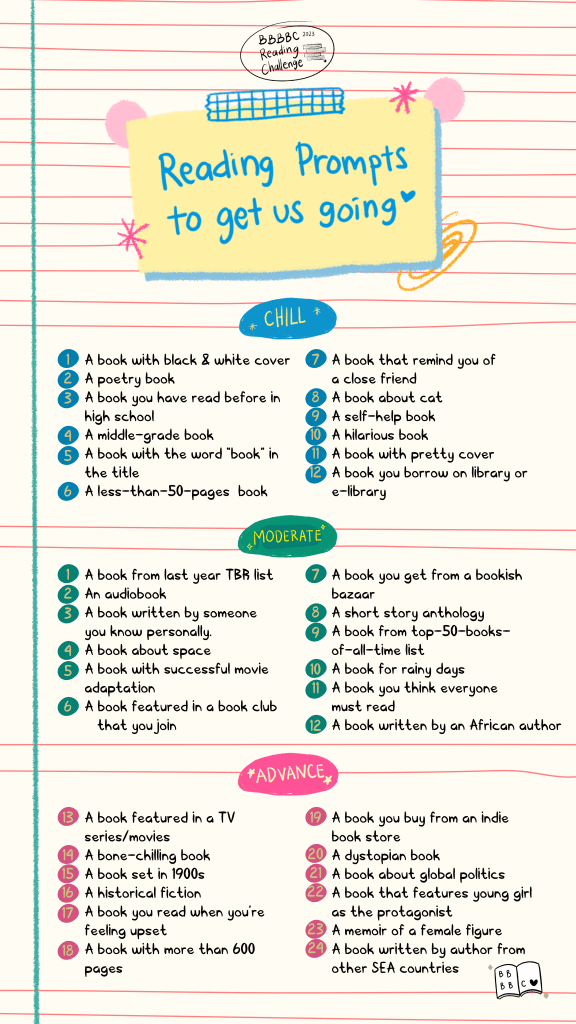 BBBBC 2023
Reading
Challenge
Reading Prompts
to get us going
CHILL
1 A book with black & white cover
2 A poetry book
3 A book you have read before in
high school
4 A middle-grade book
5 A book with the word "book" in
the title
6 A less-than-50-pages book
7 A book that remind you of
a close friend
8 A book about cat
9 A self-help book
10 A hilarious book
11 A book with pretty cover
12 A book you borrow on library or
e-library
MODERATE
1 A book from last year TBR list
2 An audiobook
3 A book written by someone
you know personally.
4 A book about space
5 A book with successful movie
adaptation
6 A book featured in a book club
that you join
7 A book you get from a bookish
bazaar
8 A short story anthology
9 A book from top-50-books-
of-all-time list
10 A book for rainy days
11 A book you think everyone
must read
12 A book written by an African author
ADVANCE
13 A book featured in a TV
series/movies
14 A bone-chilling book
15 A book set in 1900s
16 A historical fiction
17 A book you read when you're
feeling upset
18 A book with more than 600
pages
19 A book you buy from an indie
book store
20 A dystopian book
21 A book about global politics
22 A book that features young girl
as the protagonist
23 A memoir of a female figure
24 A book written by author from
other SEA countries
BB
BB C